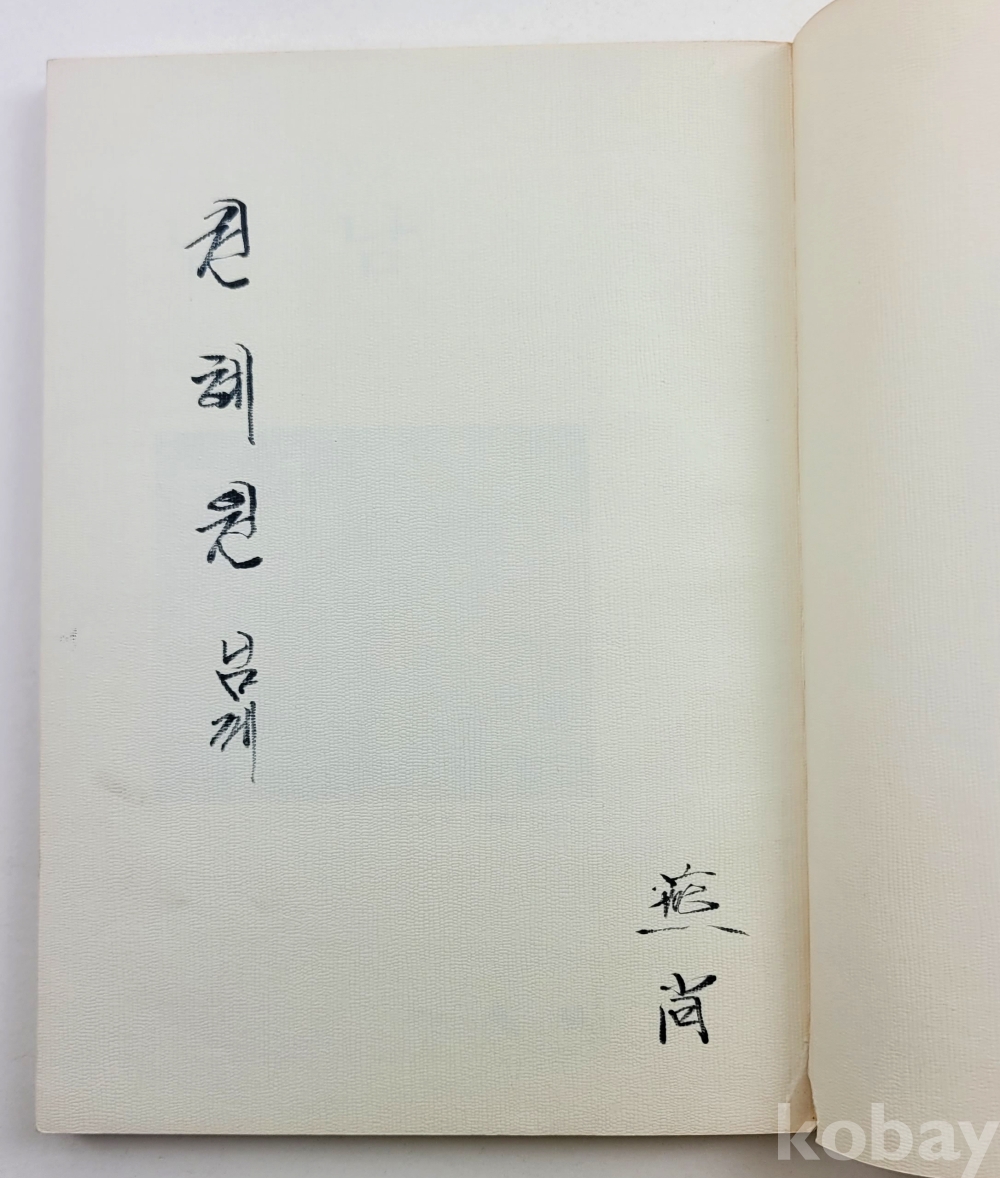 권혜원 님께
燕尚
kobay